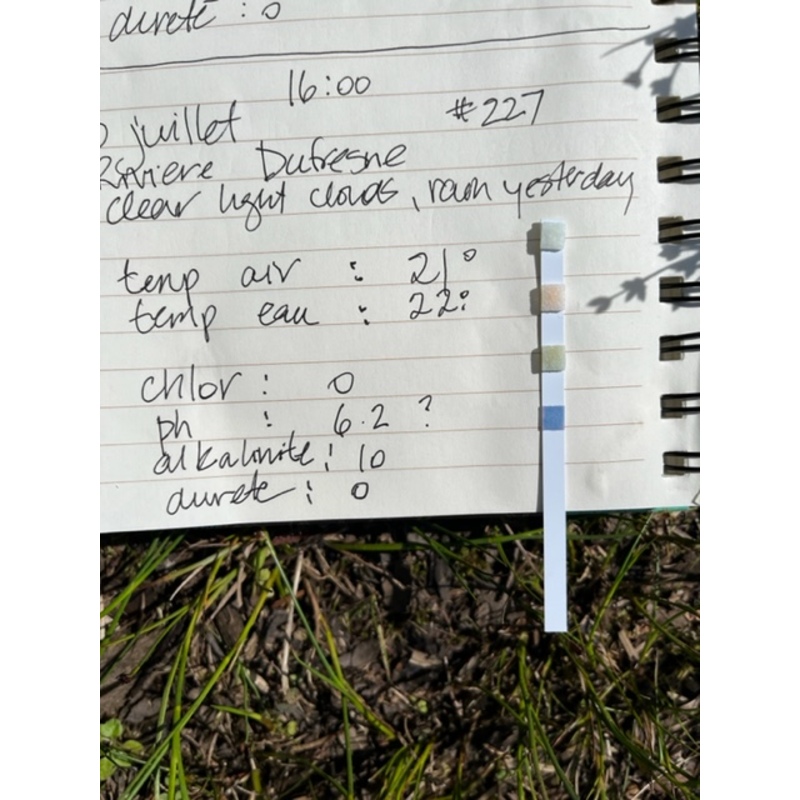 dureté : 0
16:00
juillet #227
Rivière Dufresne
clear light clouds, rain yesterday
temp air : 21°
temp eau : 22°
chlor : 0
ph : 6.2 ?
alkalinité : 10
dureté : 0